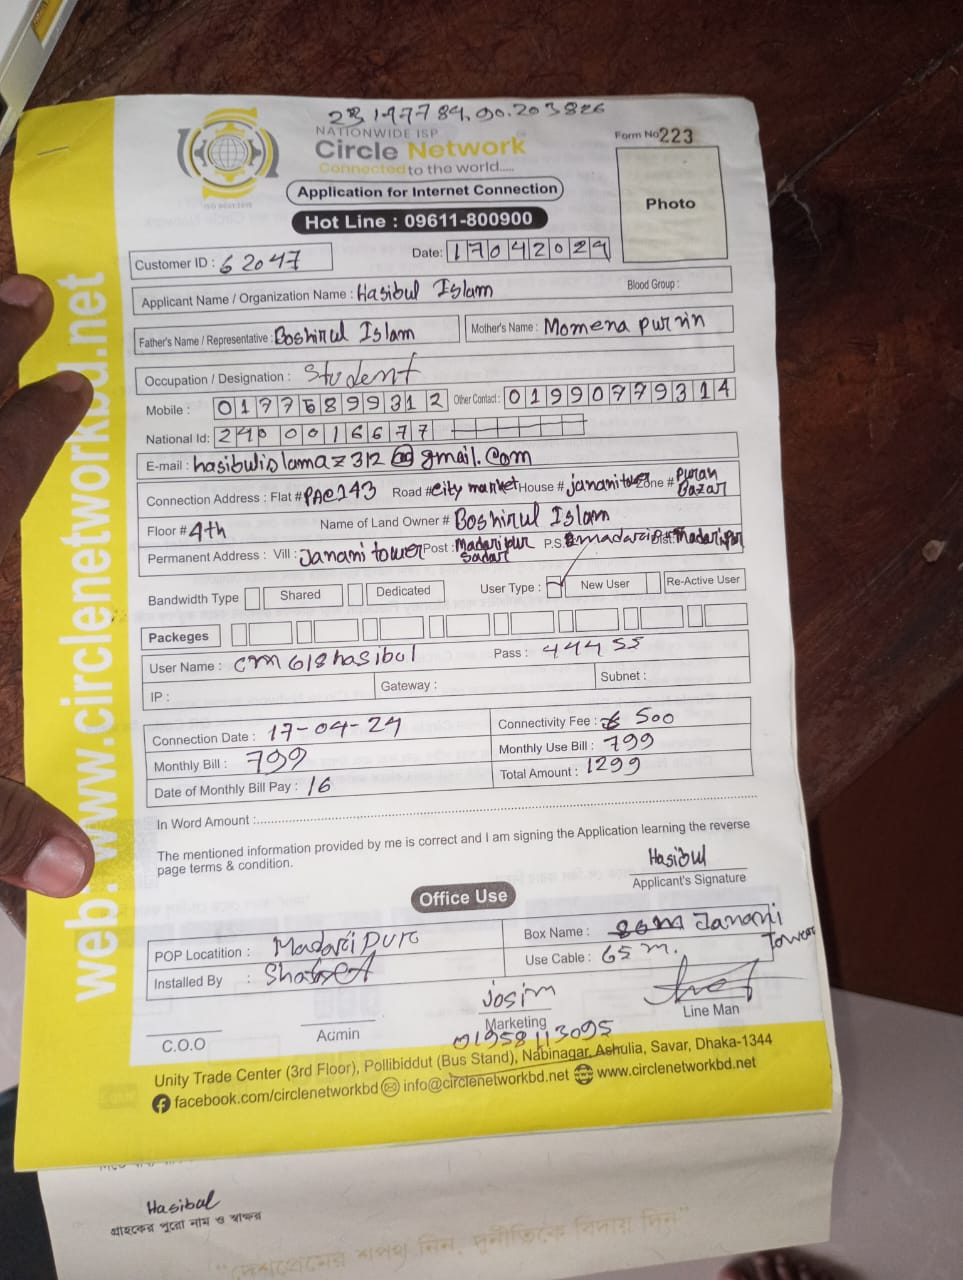 NATIONWIDE ISP
Circle Network
Connected to the world.....
Form No 223
Photo
Application for Internet Connection
Hot Line : 09611-800900
Customer ID : 62047
Date: 17042024
Applicant Name / Organization Name : Hasibul Islam
Blood Group :
Father's Name / Representative : Boshirul Islam
Mother's Name : Momena purvin
Occupation / Designation : Student
Mobile : 01776899312 Other Contact : 01990779314
National Id: 2400016677
E-mail : hasibulislamaz312@gmail.com
Connection Address : Flat # Road # City market House # janani tower Zone # Puran Bazar
Floor # 4th Name of Land Owner # Boshirul Islam
Permanent Address : Vill : Janani tower Post : Madaripur Sadar P.S. Dist: Madaripur
Bandwidth Type Shared Dedicated User Type : New User Re-Active User
Packeges
User Name : cm618hasibul Pass : 444455
IP : Gateway : Subnet :
Connection Date : 17-04-24 Connectivity Fee : 500
Monthly Bill : 799 Monthly Use Bill : 799
Date of Monthly Bill Pay : 16 Total Amount : 1299
In Word Amount :
The mentioned information provided by me is correct and I am signing the Application learning the reverse
page terms & condition.
Hasibul
Applicant's Signature
Office Use
POP Locatition : Madaripur Box Name : Janani Tower
Installed By : Use Cable : 65 m.
C.O.O Admin josim Marketing Line Man
01958113095
Unity Trade Center (3rd Floor), Pollibiddut (Bus Stand), Nabinagar, Ashulia, Savar, Dhaka-1344
facebook.com/circlenetworkbd info@circlenetworkbd.net www.circlenetworkbd.net
web: www.circlenetworkbd.net
Hasibul
গ্রাহকের পুরো নাম ও স্বাক্ষর
"দেশপ্রেমের শপথ নিন, দুর্নীতিকে বিদায় দিন"